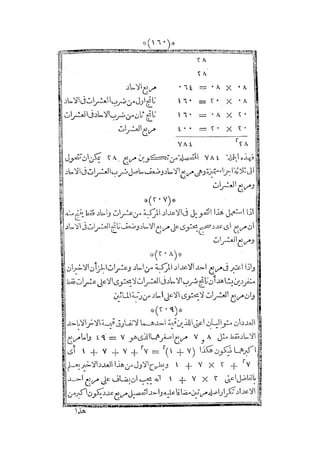 *(١٦٠)*
٢٨
٢٨
٠٨ × ٠٨ = ٠٦٤ مربع الاحاد
٠٨ × ٢٠ = ١٦٠ ناتج اول من ضرب العشرات فى الاحاد
٢٠ × ٠٨ = ١٦٠ ناتج ثان من ضرب الاحاد فى العشرات
٢٠ × ٢٠ = ٤٠٠ مربع العشرات
٢٨٢ ٧٨٤
فهذه الجملة ٧٨٤ المتحصلة من تكوين مربع ٢٨ يمكن ان تتحول
الى ثلاثة اجزاء متميزة وهى مربع الاحاد وضعف حاصل ضرب العشرات فى الاحاد
ومربع العشرات
*(٢٠٧)*
اذا استعمل هذا التحويل فى الاعداد المركبة من عشرات واحاد فقط ينتج منه
ان مربع اى عدد صحيح يحتوى على مربع الاحاد وضعف ناتج العشرات فى الاحاد
ومربع العشرات
*(٢٠٨)*
واذا اعتبر فى مربع احد الاعداد المركبة من احاد وعشرات الجزآن الاخيران
منفردين يشاهد أن ناتج ضرب الاحاد فى العشرات لا يحتوى الا على عشرات فقط
وان مربع العشرات لا يحتوى الا على احاد من رتبة المائين
*(٢٠٩)*
العددان المتواليان اعنى اللذين قيمة احدهما لا تفارق قيمة الاخر الا باحد
الاحاد فقط مثل ٨ و ٧ مربع اصغرهما الذى هو ٧ = ٤٩ واما مربع
اكبرهما فيكون هكذا (٧ + ١)٢ = ٧٢ + ٧ + ٧ + ١ أى
٧٢ + ٢ × ٧ + ١ وبطرح الاول من هذا العدد الاخير يعلم
بالفاضل اعنى ٢ × ٧ + ١ انه يجب ان يضاف على مربع احد
الاعداد تكرار اصله مرتين مضافا عليه واحد لتحصيل مربع عدد يكون اكبر من
هذا